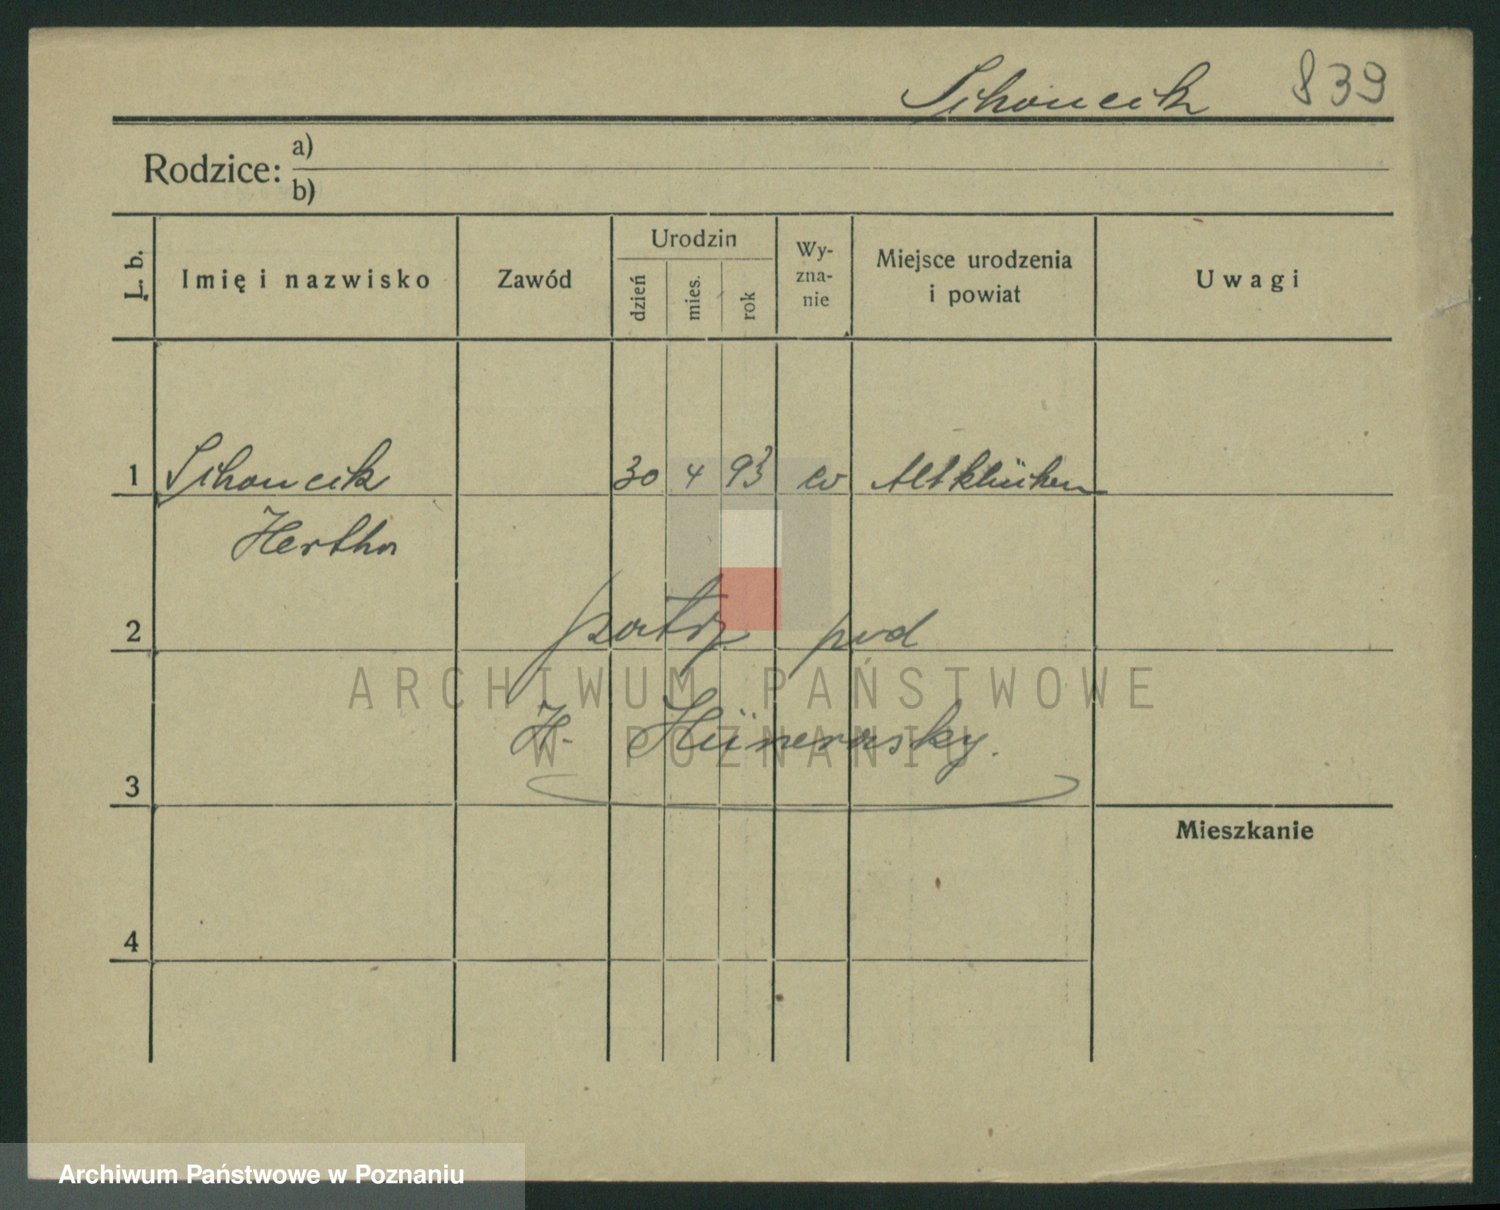 Schoncik 839
Rodzice: a)
b)
L. b.
Imię i nazwisko
Zawód
Urodzin
dzień
mies.
rok
Wy-
zna-
nie
Miejsce urodzenia
i powiat
Uwagi
1 Schoncik 30 4 93 ev Altklücken
Hertha
2 patrz pod
H.
3
Mieszkanie
4
ARCHIWUM PAŃSTWOWE
W POZNANIU
Archiwum Państwowe w Poznaniu